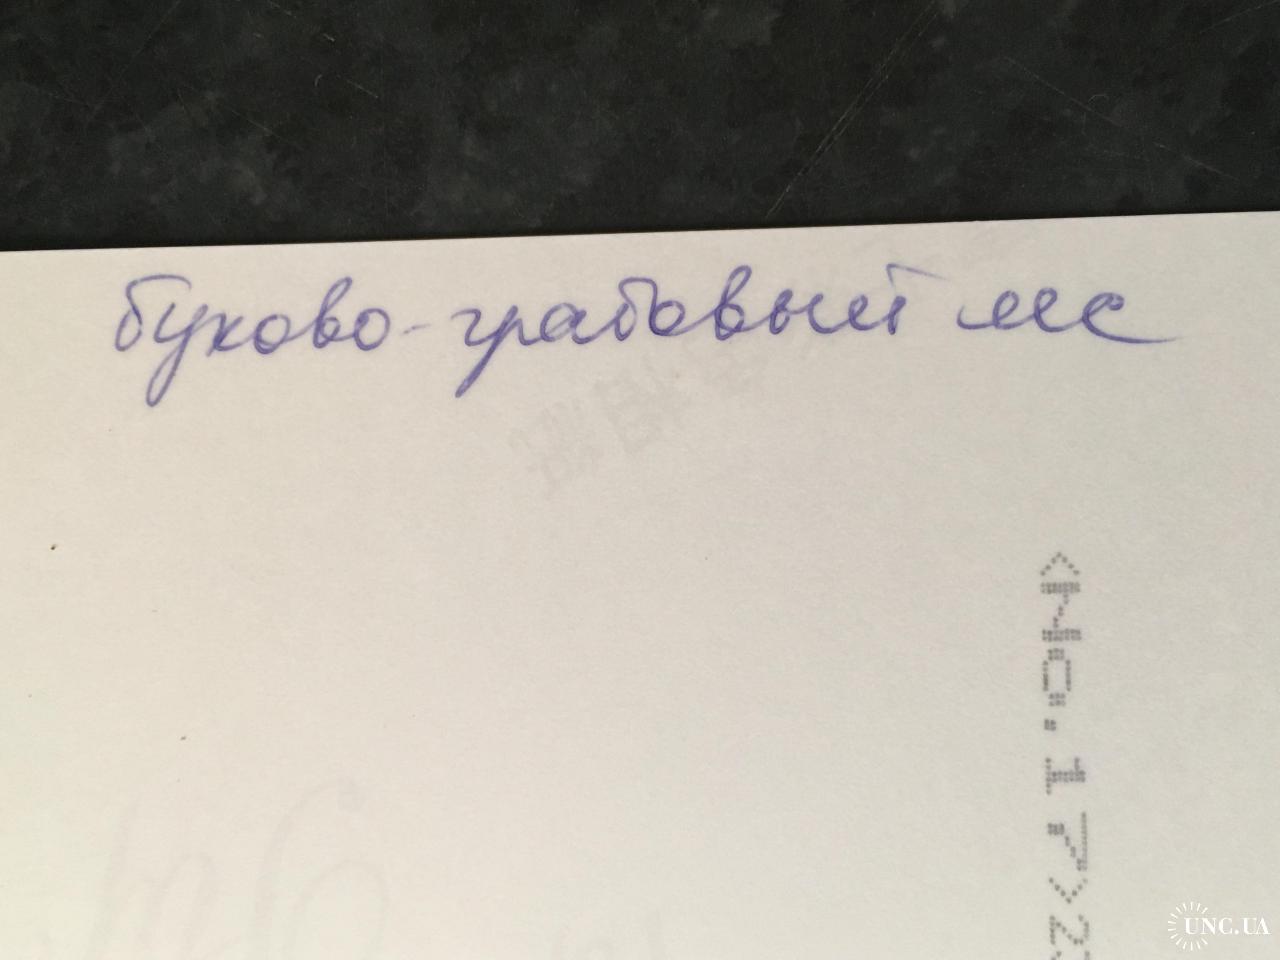 буково-грабовый лес
<No.17>2
UNC.UA